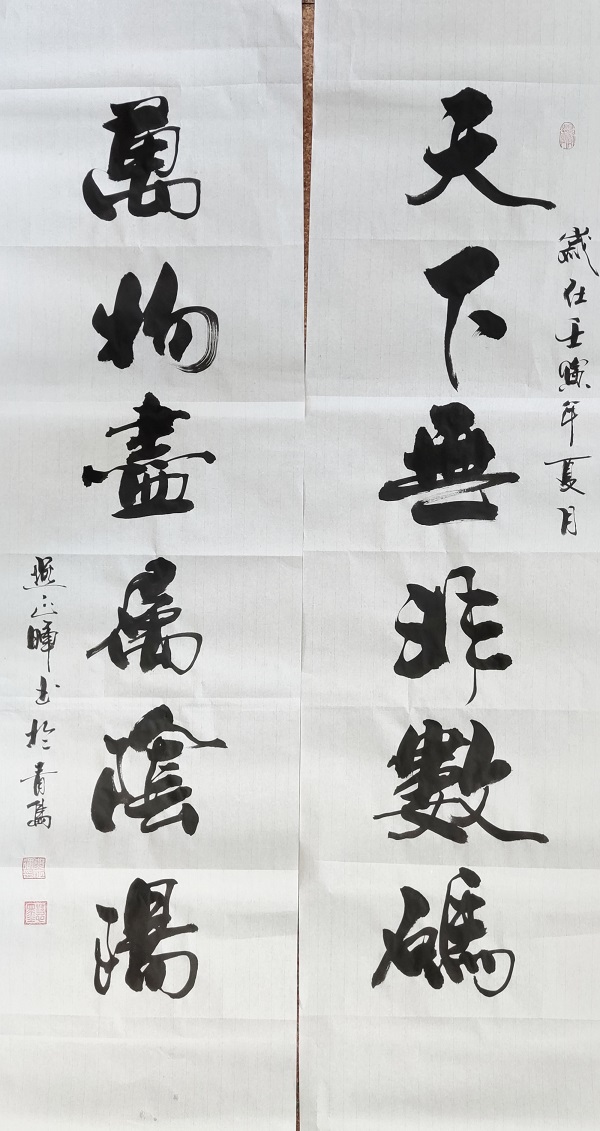 歲在壬寅年夏月
天下無非數碼
萬物盡屬陰陽
正暉书於青島